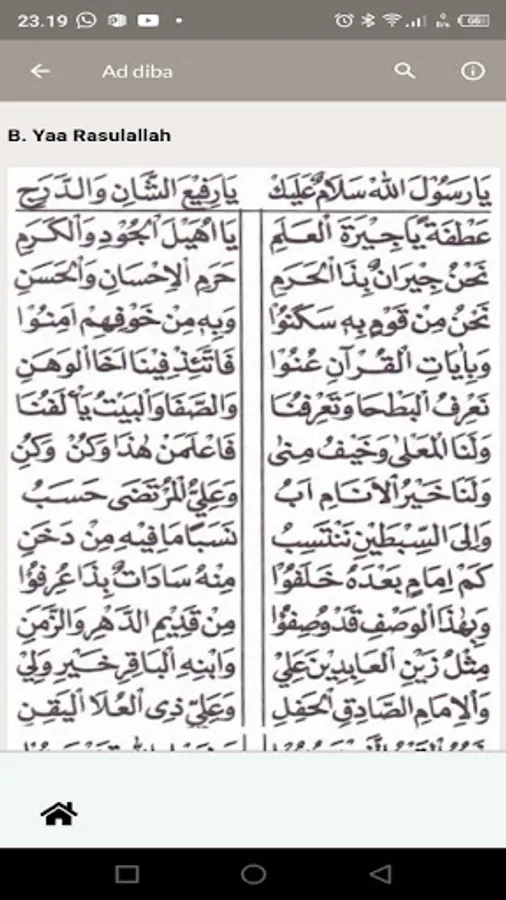 23.19
Ad diba
B. Yaa Rasulallah
يَا رَسُوْلَ اللهْ سَلَامٌ عَلَيْكْ يَا رَفِيْعَ الشَّانِ وَالدَّرَجِ
عَطْفَةً يَّاجِيْرَةَ الْعَلَمِ يَا اُهَيْلَ الْجُوْدِ وَالْكَرَمِ
نَحْنُ جِيْرَانٌ بِذَا الْحَرَمِ حَرَمِ الْاِحْسَانِ وَالْحَسَنِ
نَحْنُ مِنْ قَوْمٍ بِهِ سَكَنُوْا وَبِهِ مِنْ خَوْفِهِمْ اَمِنُوْا
وَبِاٰيَاتِ الْقُرْآنِ عُنُوْا فَاتَّئِدْ فِيْنَا اَخَا الْوَهَنِ
نَعْرِفُ الْبَطْحَا وَتَعْرِفُنَا وَالصَّفَا وَالْبَيْتُ يَأْلَفُنَا
وَلَنَا الْمَعْلٰى وَخَيْفُ مِنٰى فَاعْلَمَنْ هٰذَا وَكُنْ وَكُنِ
وَلَنَا خَيْرُ الْاَنَامِ اَبُ وَعَلِيُّ الْمُرْتَضَى حَسَبُ
وَاِلَى السِّبْطَيْنِ نَنْتَسِبُ نَسَبًا مَا فِيْهِ مِنْ دَخَنِ
كَمْ اِمَامٍ بَعْدَهُ خَلَفُوْا مِنْهُ سَادَاتٌ بِذَا عُرِفُوْا
وَبِهٰذَا الْوَصْفِ قَدْ وُصِفُوْا مِنْ قَدِيْمِ الدَّهْرِ وَالزَّمَنِ
مِثْلُ زَيْنِ الْعَابِدِيْنَ عَلِيْ وَابْنِهِ الْبَاقِرِ خَيْرِ وَلِيْ
وَالْاِمَامِ الصَّادِقِ الْحَفِلِ وَعَلِيٍّ ذِى الْعُلَا الْيَقِنِ